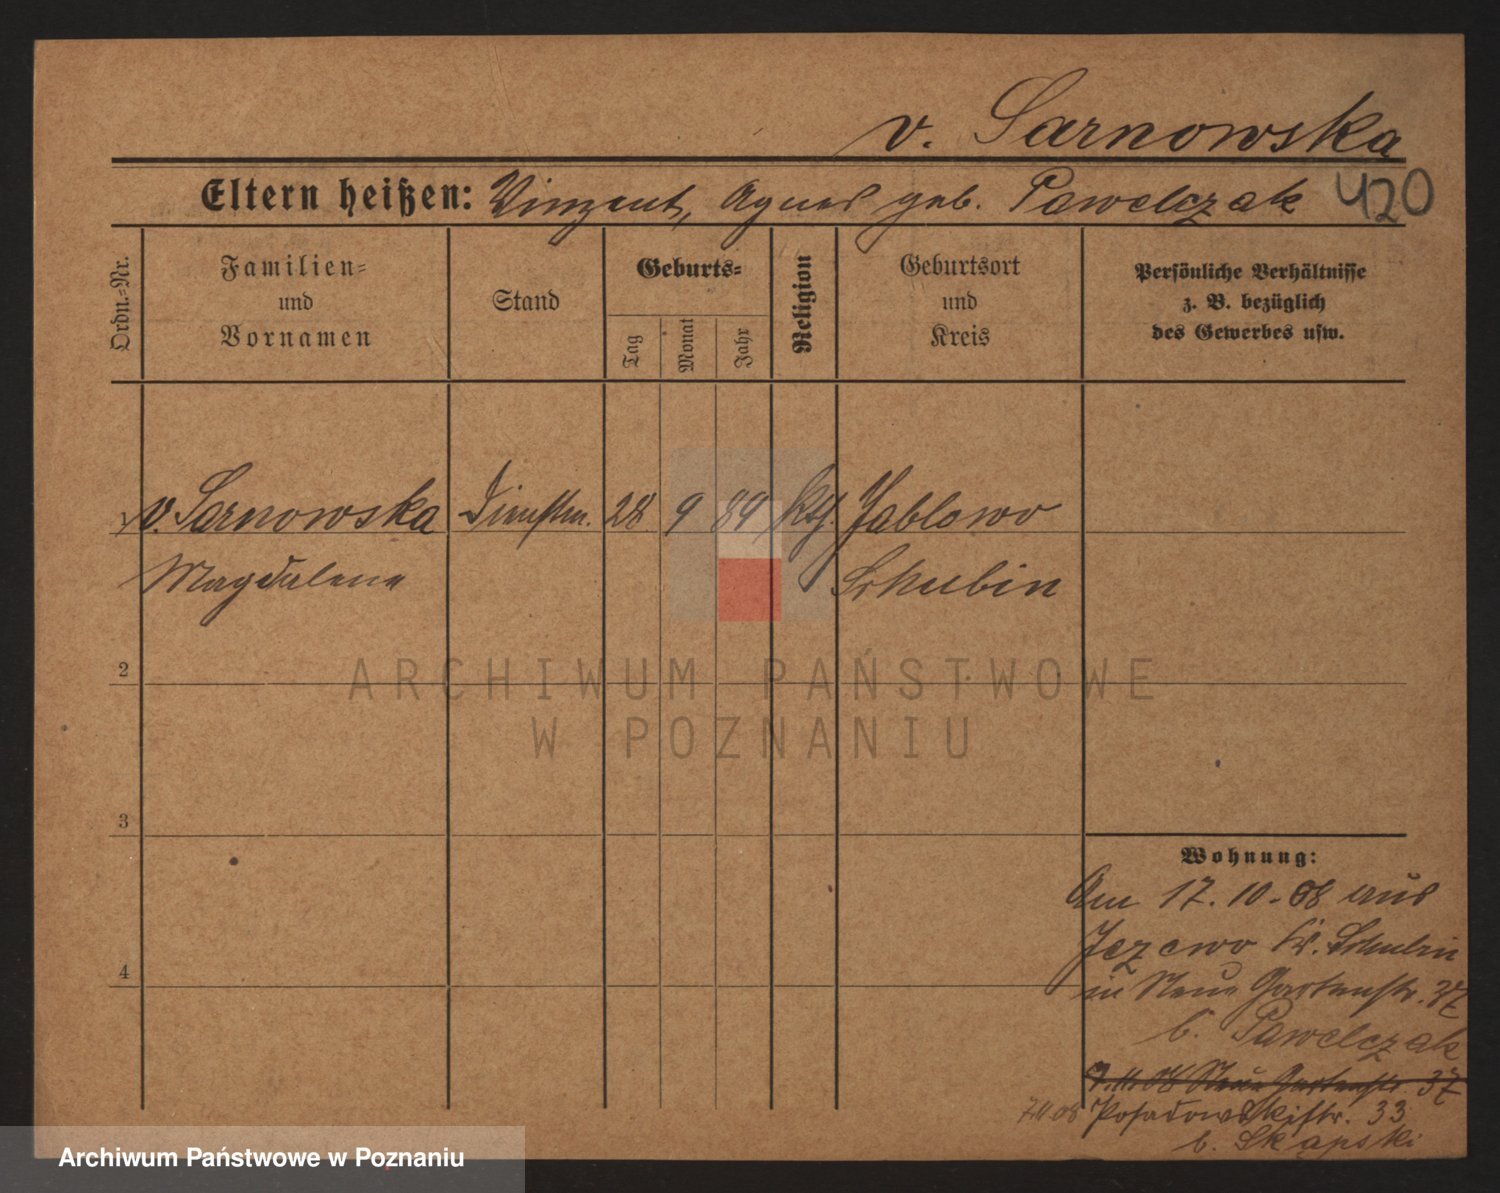 v. Sarnowska
Eltern heißen: Vinzent, Agnes geb. Pawelczak 420
Ordn.-Nr.
Familien-
und
Vornamen
Stand
Geburts-
Tag
Monat
Jahr
Religion
Geburtsort
und
Kreis
Persönliche Verhältnisse
z. B. bezüglich
des Gewerbes usw.
1 v. Sarnowska Dienstm. 28 9 89 kth. Jablowo
Magdalena Schubin
2
3
4
Wohnung:
Am 17.10.08 aus
Jezewo Kr. Schubin
in Neue Gartenstr. 37
b. Pawelczak
7.11.08 Neue Gartenstr 37
7.11.08 Posadowskistr. 33
b. Skąpski
ARCHIWUM PAŃSTWOWE
W POZNANIU
Archiwum Państwowe w Poznaniu